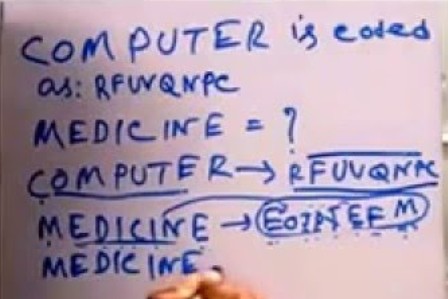 COMPUTER is coded
as: RFUVQNPC
MEDICINE = ?
COMPUTER → RFUVQNPC
MEDICINE →
MEDICINE